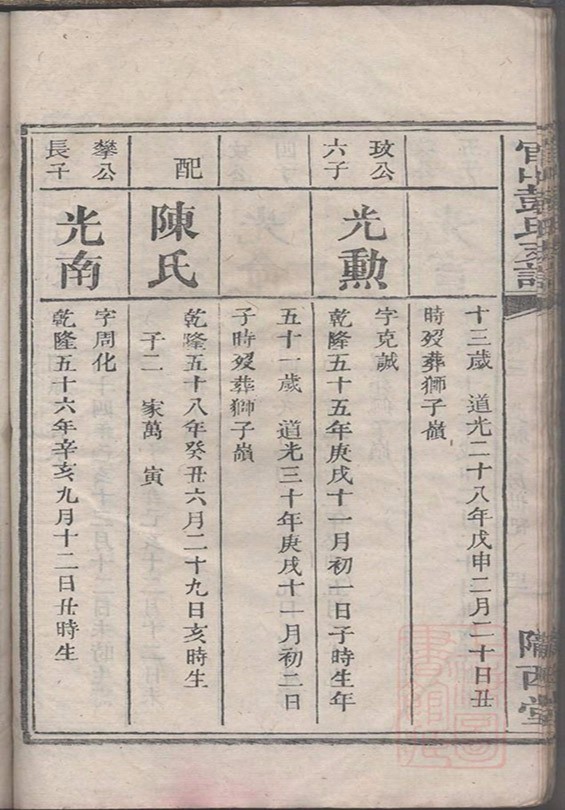 官山彭氏宗譜
隴西堂
十三歲 道光二十八年戊申二月二十日丑
時歿葬獅子嶺
玫公
六子
光勳
字克誠
乾隆五十五年庚戌十一月初一日子時生年
五十一歲 道光三十年庚戌十一月初二日
子時歿葬獅子嶺
配
陳氏
乾隆五十八年癸丑六月二十九日亥時生
子二 家萬 寅
攀公
長子
光南
字周化
乾隆五十六年辛亥九月十二日丑時生